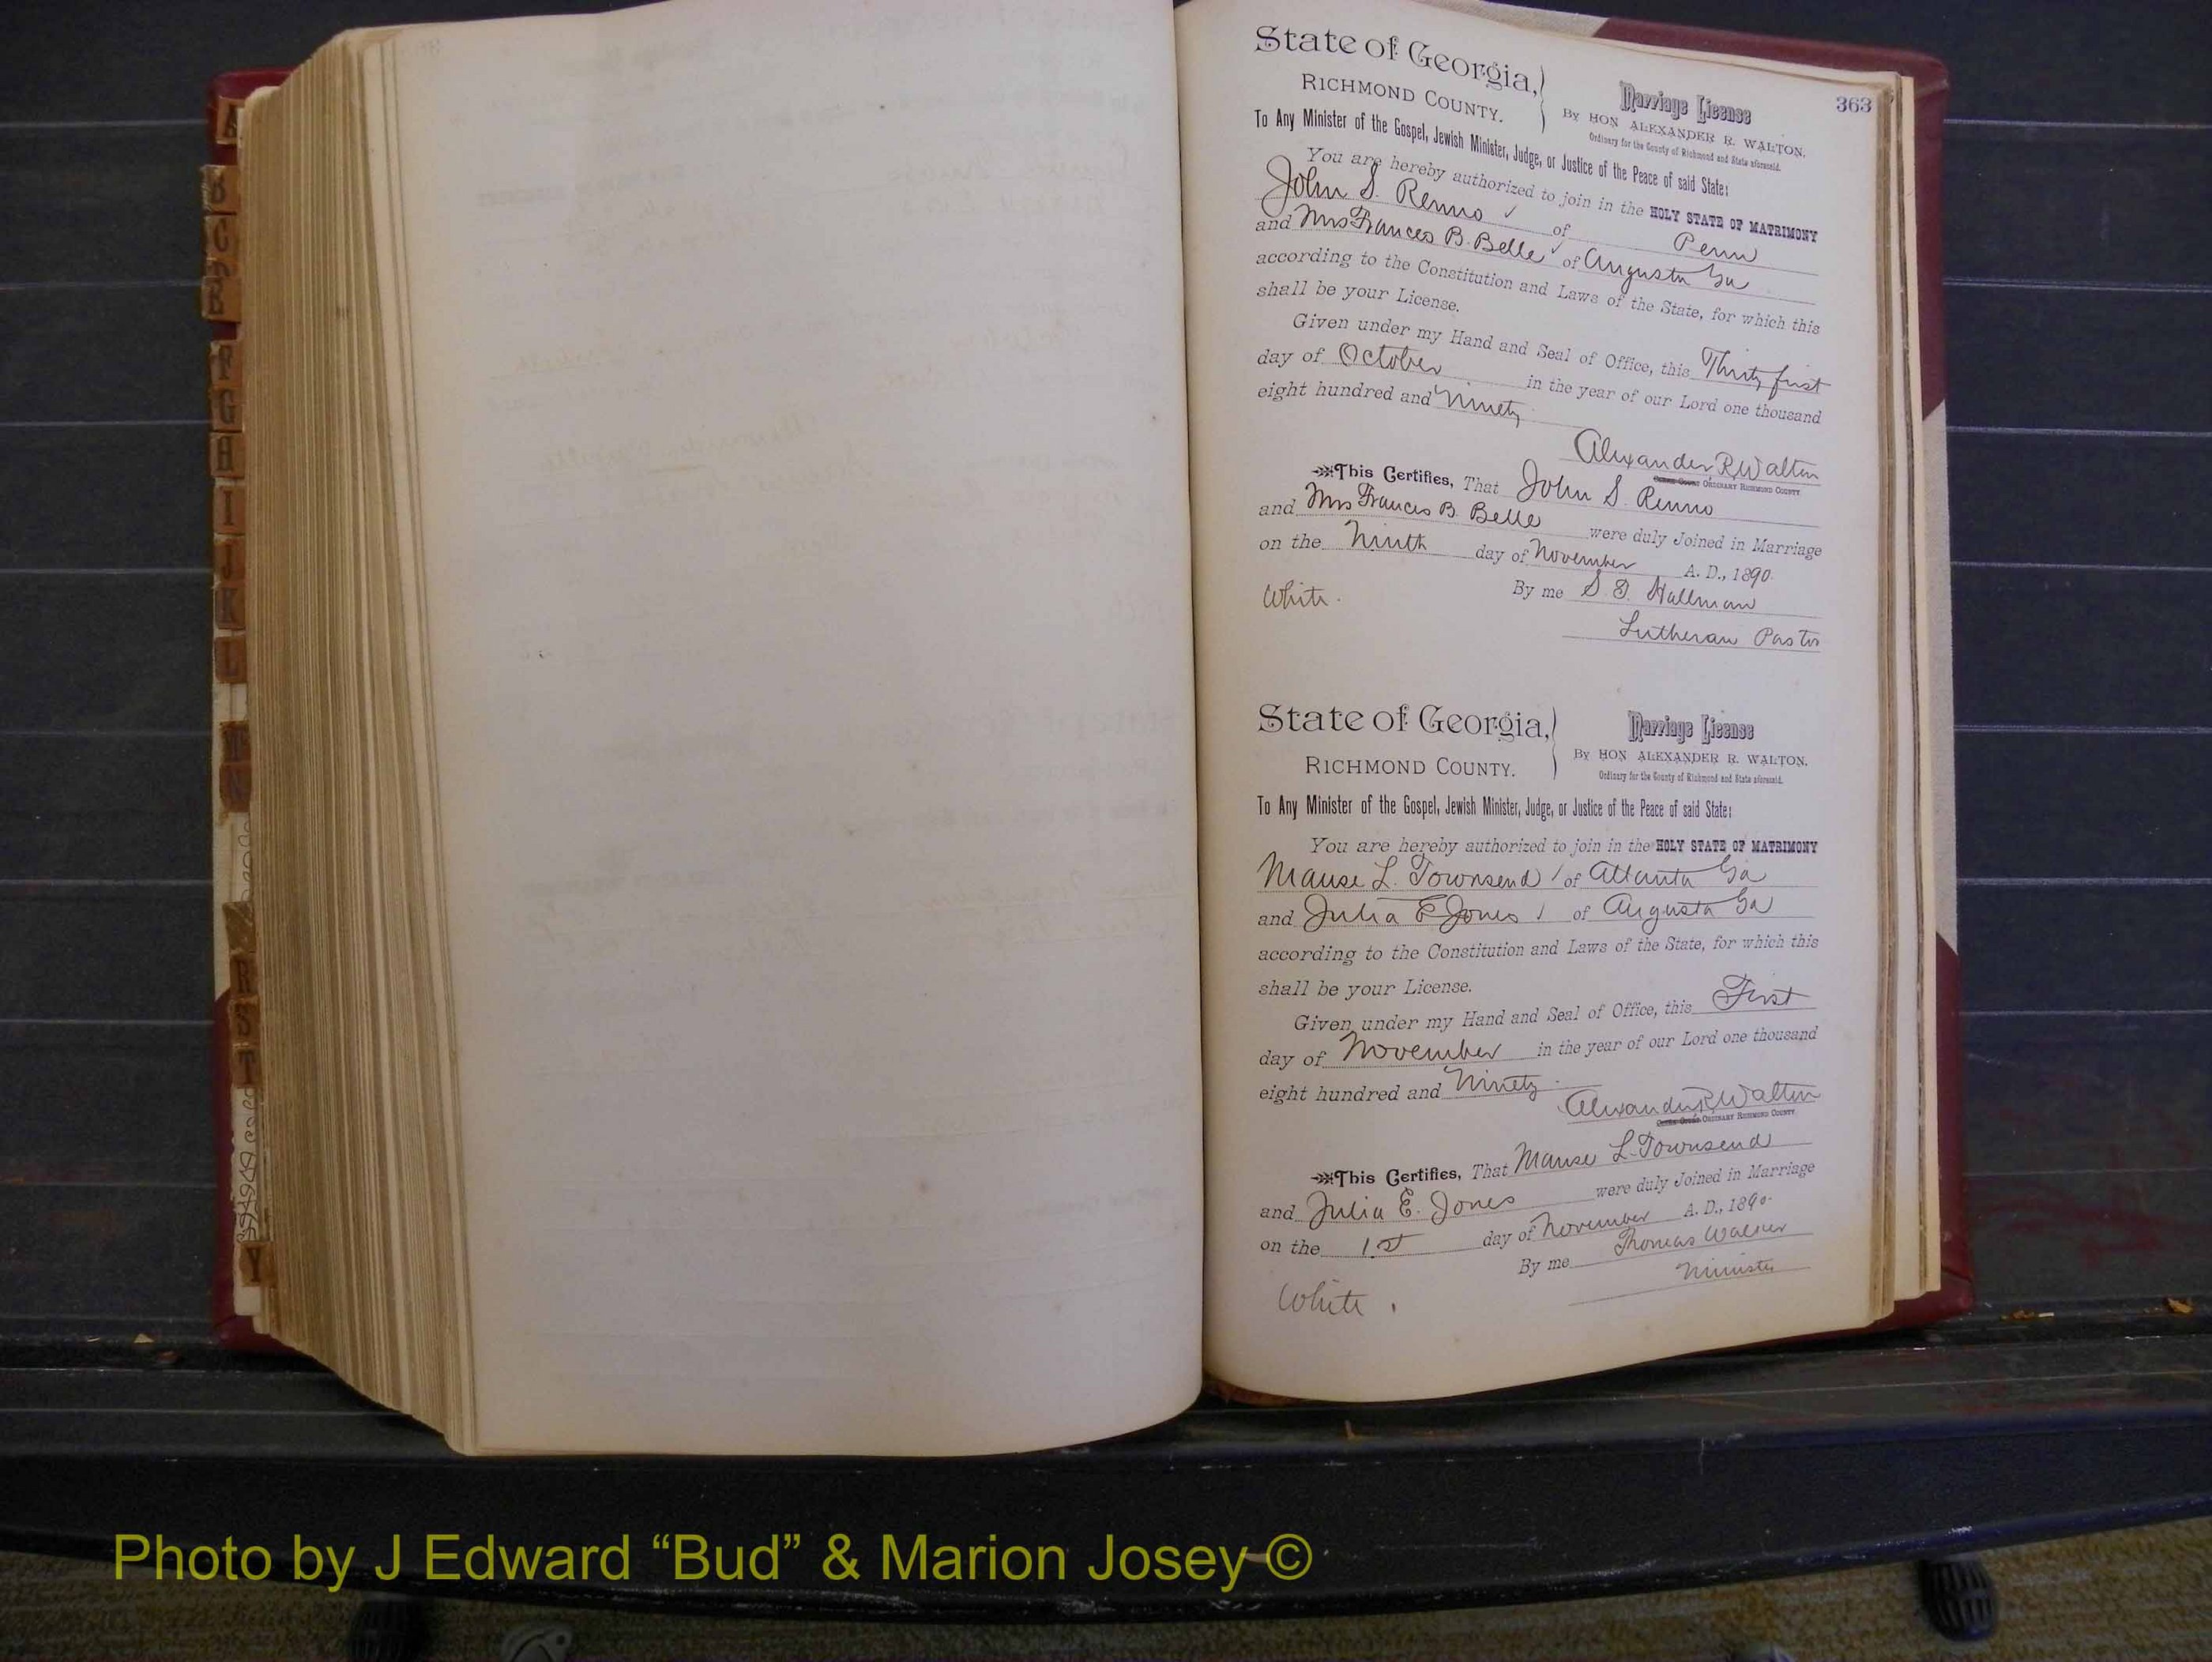 363
State of Georgia,
RICHMOND COUNTY.
Marriage License
By HON ALEXANDER R. WALTON.
Ordinary for the County of Richmond and State aforesaid.
To Any Minister of the Gospel, Jewish Minister, Judge, or Justice of the Peace of said State:
You are hereby authorized to join in the HOLY STATE OF MATRIMONY
John S. Renno of Penn
and Mrs Frances B. Belle of Augusta Ga
according to the Constitution and Laws of the State, for which this
shall be your License.
Given under my Hand and Seal of Office, this Thirty first
day of October in the year of our Lord one thousand
eight hundred and Ninety
Alexander R Walton
ORDINARY RICHMOND COUNTY
This Certifies, That John S. Renno
and Mrs Frances B. Belle were duly Joined in Marriage
on the Ninth day of November A. D., 1890.
By me S. T. Hallman
White.
Lutheran Pastor
State of Georgia,
RICHMOND COUNTY.
Marriage License
By HON ALEXANDER R. WALTON.
Ordinary for the County of Richmond and State aforesaid.
To Any Minister of the Gospel, Jewish Minister, Judge, or Justice of the Peace of said State:
You are hereby authorized to join in the HOLY STATE OF MATRIMONY
Mause L. Townsend of Atlanta Ga
and Julia E Jones of Augusta Ga
according to the Constitution and Laws of the State, for which this
shall be your License.
Given under my Hand and Seal of Office, this First
day of November in the year of our Lord one thousand
eight hundred and Ninety.
Alexander R Walton
ORDINARY RICHMOND COUNTY
This Certifies, That Mause L. Townsend
and Julia E. Jones were duly Joined in Marriage
on the 1st day of November A. D., 1890.
By me Thomas Walker
Minister
White.
B
C
F
G
H
I
J
K
L
N
R
S
T
Y
Photo by J Edward “Bud” & Marion Josey ©